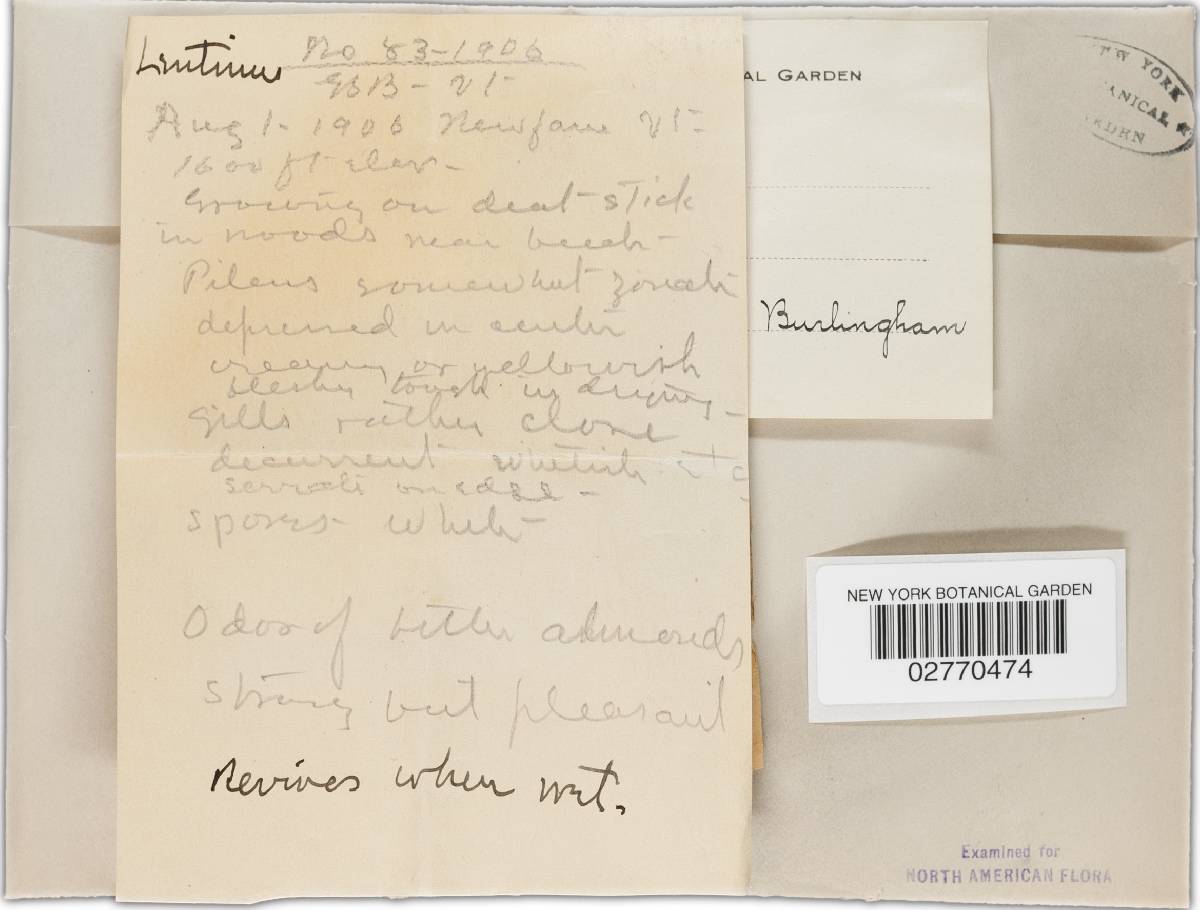 Lentinus No 83-1906
GSB - Vt
Aug 1- 1906 Newfane Vt-
1600 ft elev-
Growing on deat stick
in woods near beech-
Pileus somewhat zonate
depressed in center
creamy or yellowish
fleshy tough in drying-
Gills rather close
decurrent whitish
serrate on edge-
spores white
Odor of bitter almonds
strong but pleasant
Revives when wet.
AL GARDEN
Burlingham
EW YORK
ANICAL
RDEN
NEW YORK BOTANICAL GARDEN
02770474
Examined for
NORTH AMERICAN FLORA